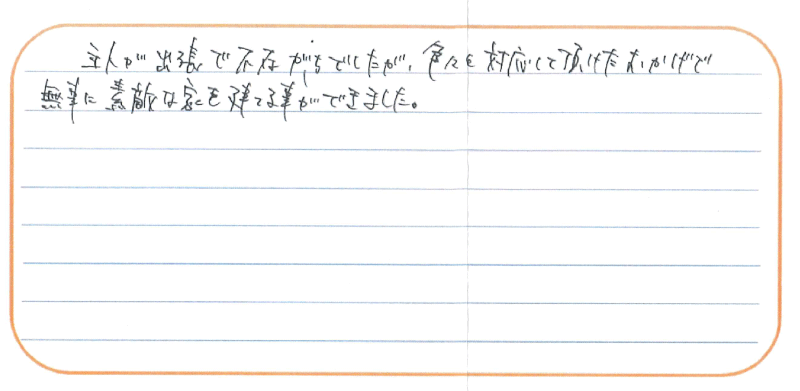 主人が出張で不在がちでしたが、色々と対応して頂けたおかげで
無事に素敵な家を建てる事ができました。